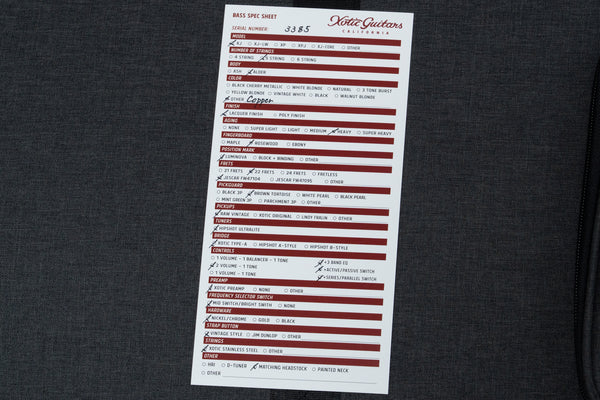 BASS SPEC SHEET
Xotic Guitars
CALIFORNIA
SERIAL NUMBER: 3385
MODEL
XJ XJ-1W XP XPJ XJ-CORE OTHER
NUMBER OF STRINGS
4 STRING 5 STRING 6 STRING
BODY
ASH ALDER
COLOR
BLACK CHERRY METALLIC WHITE BLONDE NATURAL 3 TONE BURST
YELLOW BLONDE VINTAGE WHITE BLACK WALNUT BLONDE
OTHER Copper
FINISH
LACQUER FINISH POLY FINISH
AGING
NONE SUPER LIGHT LIGHT MEDIUM HEAVY SUPER HEAVY
FINGERBOARD
MAPLE ROSEWOOD EBONY
POSITION MARK
LUMINOVA BLOCK + BINDING OTHER
FRETS
21 FRETS 22 FRETS 24 FRETS FRETLESS
JESCAR FW47104 JESCAR FW47095 OTHER
PICKGUARD
BLACK 3P BROWN TORTOISE WHITE PEARL BLACK PEARL
MINT GREEN 3P PARCHMENT 3P OTHER
PICKUPS
RAW VINTAGE XOTIC ORIGINAL LINDY FRALIN OTHER
TUNERS
HIPSHOT ULTRALITE
BRIDGE
XOTIC TYPE-A HIPSHOT A-STYLE HIPSHOT B-STYLE
CONTROLS
1 VOLUME - 1 BALANCER - 1 TONE +3 BAND EQ
2 VOLUME - 1 TONE +ACTIVE/PASSIVE SWITCH
1 VOLUME - 1 TONE +SERIES/PARALLEL SWITCH
PREAMP
XOTIC PREAMP NONE OTHER
FREQUENCY SELECTOR SWITCH
MID SWITCH/BRIGHT SWITCH NONE
HARDWARE
NICKEL/CHROME GOLD BLACK
STRAP BUTTON
VINTAGE STYLE JIM DUNLOP OTHER
STRINGS
XOTIC STAINLESS STEEL OTHER
OTHER
D-TUNER MATCHING HEADSTOCK PAINTED NECK
OTHER